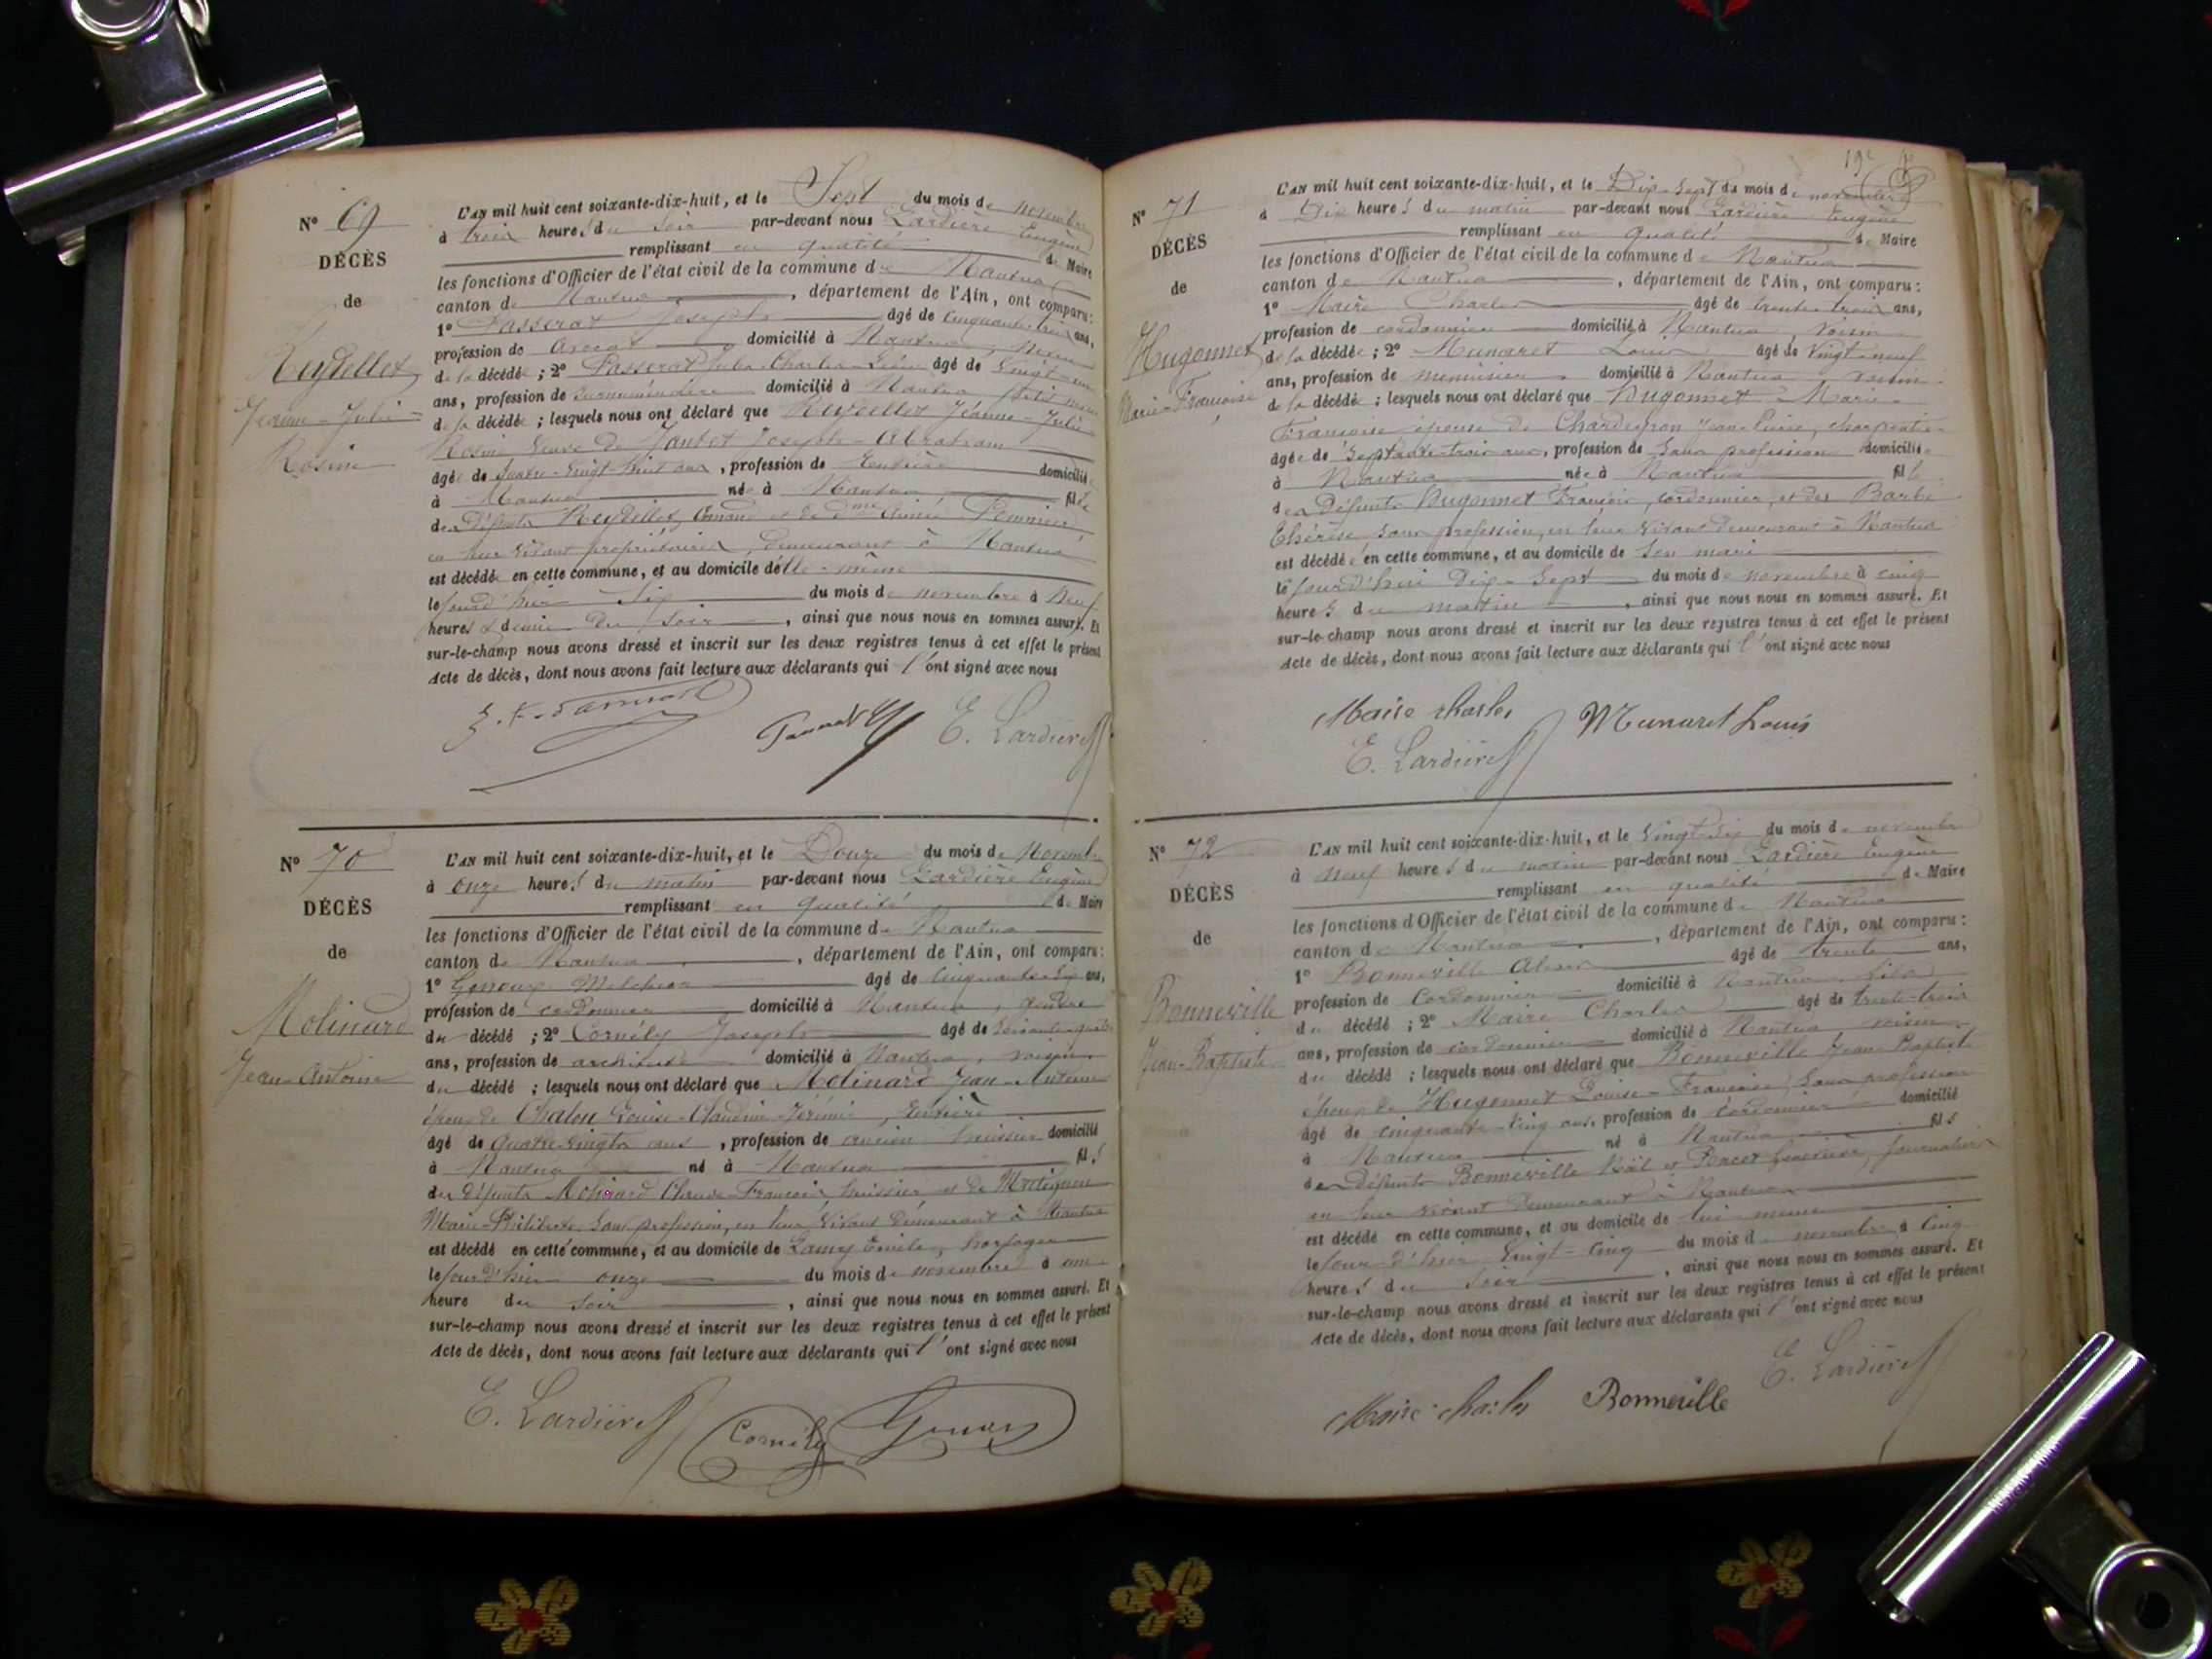 N° 69
DÉCÈS
de
Reydellet
Jeanne-Julie-
Rosine
L'AN mil huit cent soixante-dix-huit, et le Sept du mois de novembre
à trois heures du soir par-devant nous Lardière Eugène
remplissant en qualité de Maire
les fonctions d'Officier de l'état civil de la commune de Nantua
canton de Nantua, département de l'Ain, ont comparu :
1° Passerat Joseph âgé de cinquante-trois ans,
profession de avocat domicilié à Nantua, neveu
de la décédée ; 2° Passerat Jules-Charles-Léon âgé de vingt-un
ans, profession de surnuméraire domicilié à Nantua, petit neveu
de la décédée ; lesquels nous ont déclaré que Reydellet Jeanne-Julie
Rosine veuve de Jantet Joseph-Abraham
âgée de quatre-vingt-huit ans, profession de rentière domiciliée
à Nantua née à Nantua fille
des défunts Reydellet, et de dme Aimée
en leur vivant propriétaires, demeurant à Nantua
est décédée en cette commune, et au domicile d'elle-même
le jour d'hier six du mois de novembre à neuf
heures & demie du soir, ainsi que nous nous en sommes assuré. Et
sur-le-champ nous avons dressé et inscrit sur les deux registres tenus à cet effet le présent
Acte de décès, dont nous avons fait lecture aux déclarants qui l'ont signé avec nous
E. Lardière
N° 70
DÉCÈS
de
Molinard
Jean-Antoine
L'AN mil huit cent soixante-dix-huit, et le Douze du mois de novembre
à onze heures du matin par-devant nous Lardière Eugène
remplissant en qualité de Maire
les fonctions d'Officier de l'état civil de la commune de Nantua
canton de Nantua, département de l'Ain, ont comparu :
1° Genoux Melchior âgé de cinquante-six ans,
profession de cordonnier domicilié à Nantua, gendre
du décédé ; 2° Cornély Joseph âgé de soixante-quatre
ans, profession de architecte domicilié à Nantua, voisin
du décédé ; lesquels nous ont déclaré que Molinard Jean-Antoine
époux de Chalon Louise-Claudine-Jérémie, rentière
âgé de quatre-vingts ans, profession de ancien huissier domicilié
à Nantua né à Nantua fils
des défunts Molinard Claude-François, huissier et de
Marie-Philiberte, sans profession, en leur vivant demeurant à Nantua
est décédé en cette commune, et au domicile de Lamy Emile, horloger
le jour d'hier onze du mois de novembre à une
heure du soir, ainsi que nous nous en sommes assuré. Et
sur-le-champ nous avons dressé et inscrit sur les deux registres tenus à cet effet le présent
Acte de décès, dont nous avons fait lecture aux déclarants qui l'ont signé avec nous
E. Lardière Cornély Genoux
N° 71
DÉCÈS
de
Hugonnet
Marie-Françoise
L'AN mil huit cent soixante-dix-huit, et le Dix-Sept du mois de novembre
à Dix heures du matin par-devant nous Lardière Eugène
remplissant en qualité de Maire
les fonctions d'Officier de l'état civil de la commune de Nantua
canton de Nantua, département de l'Ain, ont comparu :
1° Maire Charles âgé de trente-trois ans,
profession de cordonnier domicilié à Nantua, voisin
de la décédée ; 2° Munaret Louis âgé de vingt-neuf
ans, profession de menuisier domicilié à Nantua voisin
de la décédée ; lesquels nous ont déclaré que Hugonnet-Marie-
Françoise épouse de Chardeyron Jean-Pierre, charpentier
âgée de septante-trois ans, profession de sans profession domiciliée
à Nantua née à Nantua fille
des défunts Hugonnet François, cordonnier, et de Barbe
Thérèse sans profession, en leur vivant demeurant à Nantua
est décédée en cette commune, et au domicile de son mari
le jourd'hui Dix-Sept du mois de novembre à cinq
heures du matin, ainsi que nous nous en sommes assuré. Et
sur-le-champ nous avons dressé et inscrit sur les deux registres tenus à cet effet le présent
Acte de décès, dont nous avons fait lecture aux déclarants qui l'ont signé avec nous
Maire Charles Munaret Louis
E. Lardière
N° 72
DÉCÈS
de
Bonneville
Jean-Baptiste
L'AN mil huit cent soixante-dix-huit, et le Vingt-six du mois de novembre
à neuf heures du matin par-devant nous Lardière Eugène
remplissant en qualité de Maire
les fonctions d'Officier de l'état civil de la commune de Nantua
canton de Nantua, département de l'Ain, ont comparu :
1° Bonneville âgé de trente ans,
profession de cordonnier domicilié à Nantua, fils
du décédé ; 2° Maire Charles âgé de trente-trois
ans, profession de cordonnier domicilié à Nantua, voisin
du décédé ; lesquels nous ont déclaré que Bonneville Jean-Baptiste
époux de Hugonnet Louise-Françoise, sans profession
âgé de cinquante-cinq ans, profession de cordonnier domicilié
à Nantua né à Nantua fils
des défunts Bonneville Noël et Poncet Geneviève, journaliers
en leur vivant demeurant à Nantua
est décédé en cette commune, et au domicile de lui-même
le jour d'hier vingt-cinq du mois de novembre à cinq
heures du soir, ainsi que nous nous en sommes assuré. Et
sur-le-champ nous avons dressé et inscrit sur les deux registres tenus à cet effet le présent
Acte de décès, dont nous avons fait lecture aux déclarants qui l'ont signé avec nous
E. Lardière
Maire Charles Bonneville